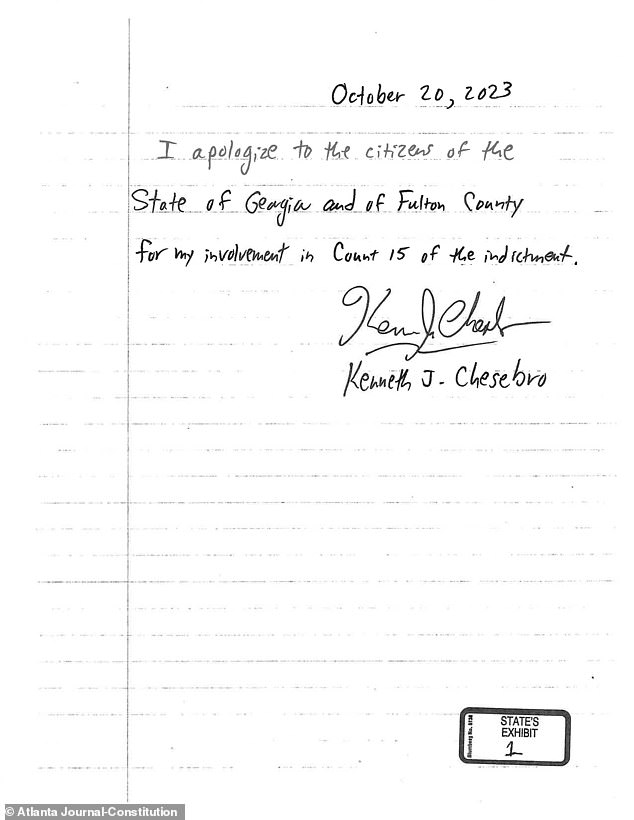 October 20, 2023
I apologize to the citizens of the
State of Georgia and of Fulton County
for my involvement in Count 15 of the indictment.
Kenneth J. Chesebro
STATE'S
EXHIBIT
1
© Atlanta Journal-Constitution